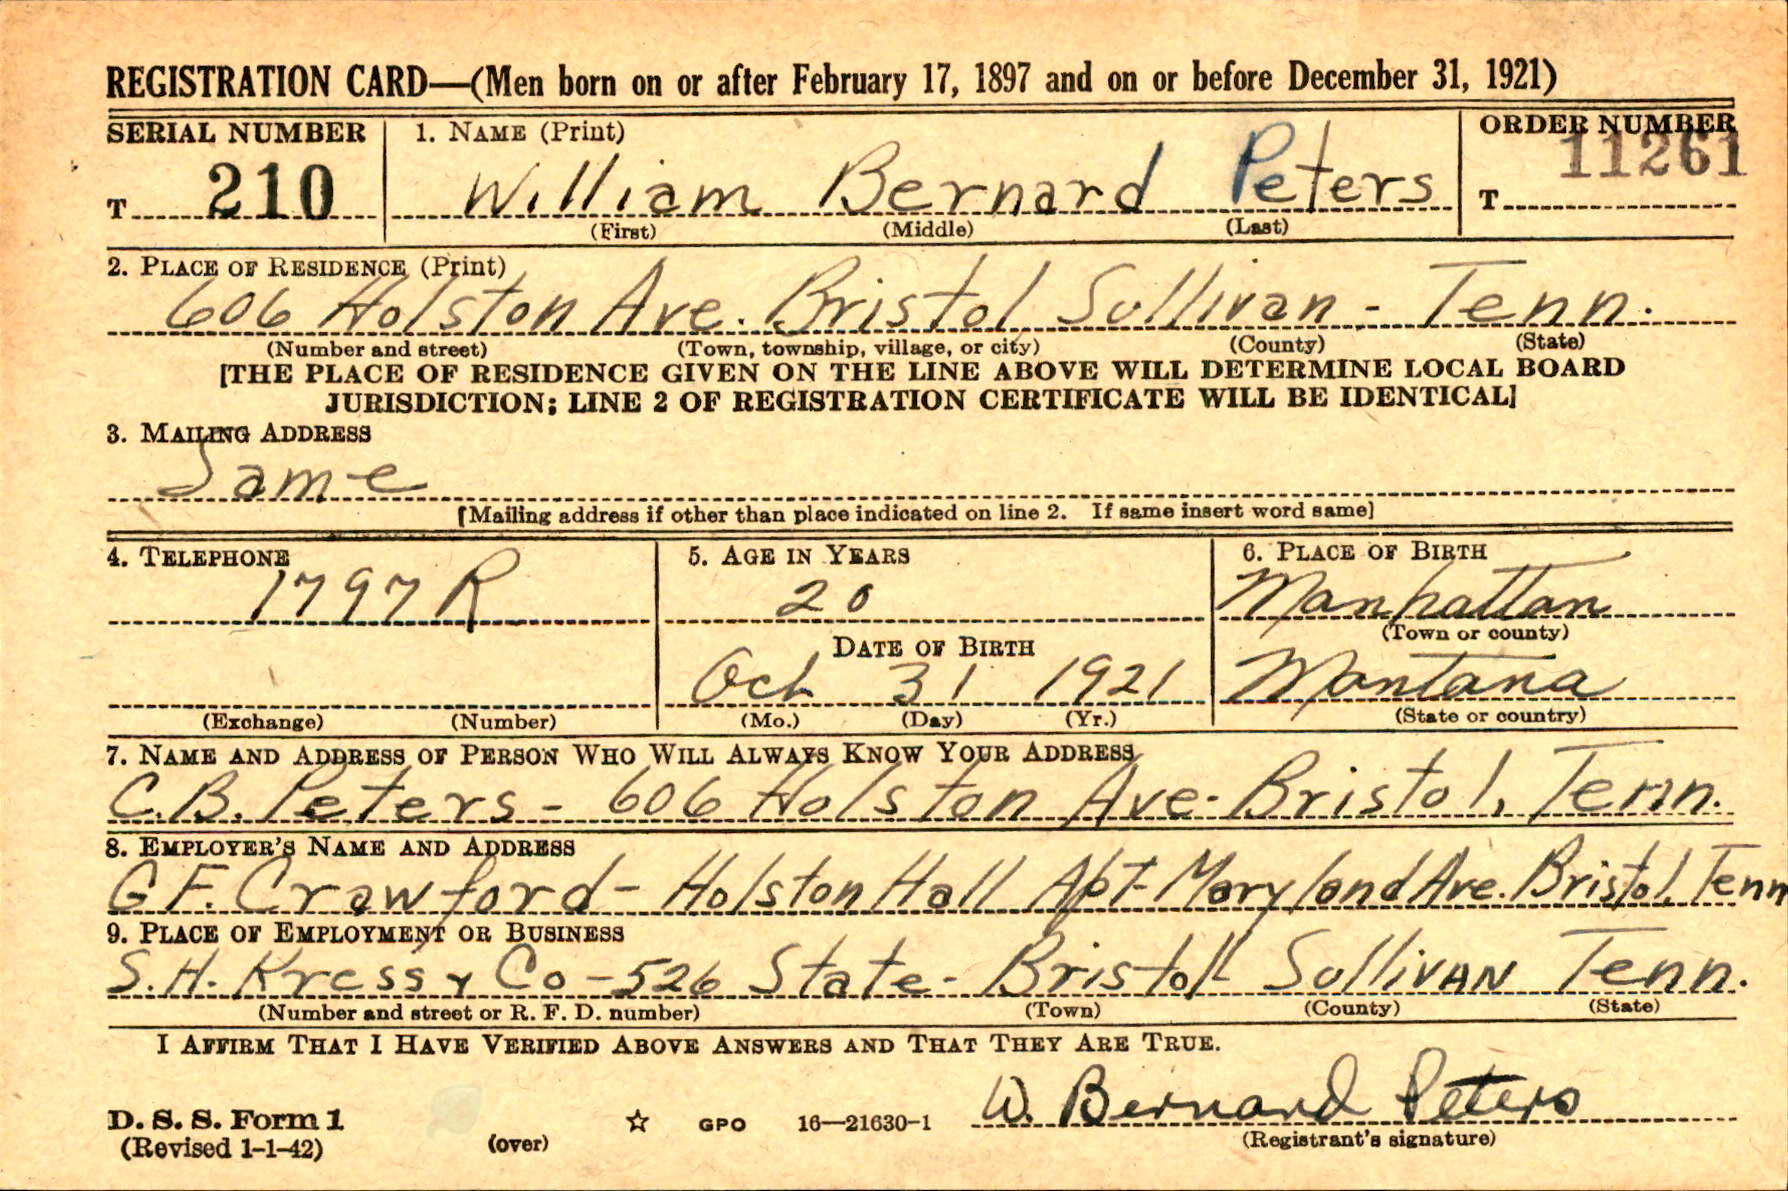 REGISTRATION CARD—(Men born on or after February 17, 1897 and on or before December 31, 1921)
SERIAL NUMBER 1. NAME (Print) ORDER NUMBER
T 210 William Bernard Peters T 11261
(First) (Middle) (Last)
2. PLACE OF RESIDENCE (Print)
606 Holston Ave. Bristol Sullivan - Tenn.
(Number and street) (Town, township, village, or city) (County) (State)
[THE PLACE OF RESIDENCE GIVEN ON THE LINE ABOVE WILL DETERMINE LOCAL BOARD
JURISDICTION; LINE 2 OF REGISTRATION CERTIFICATE WILL BE IDENTICAL]
3. MAILING ADDRESS
Same
[Mailing address if other than place indicated on line 2. If same insert word same]
4. TELEPHONE 5. AGE IN YEARS 6. PLACE OF BIRTH
1797 R 20 Manhattan
(Town or county)
DATE OF BIRTH
Oct 31 1921 Montana
(Exchange) (Number) (Mo.) (Day) (Yr.) (State or country)
7. NAME AND ADDRESS OF PERSON WHO WILL ALWAYS KNOW YOUR ADDRESS
C.B. Peters - 606 Holston Ave - Bristol, Tenn.
8. EMPLOYER'S NAME AND ADDRESS
G F. Crawford - Holston Hall Apt - Maryland Ave. Bristol, Tenn
9. PLACE OF EMPLOYMENT OR BUSINESS
S.H. Kress & Co - 526 State - Bristol - Sullivan Tenn.
(Number and street or R. F. D. number) (Town) (County) (State)
I AFFIRM THAT I HAVE VERIFIED ABOVE ANSWERS AND THAT THEY ARE TRUE.
W. Bernard Peters
D. S. S. Form 1 ☆ GPO 16—21630-1
(Revised 1-1-42) (over) (Registrant's signature)